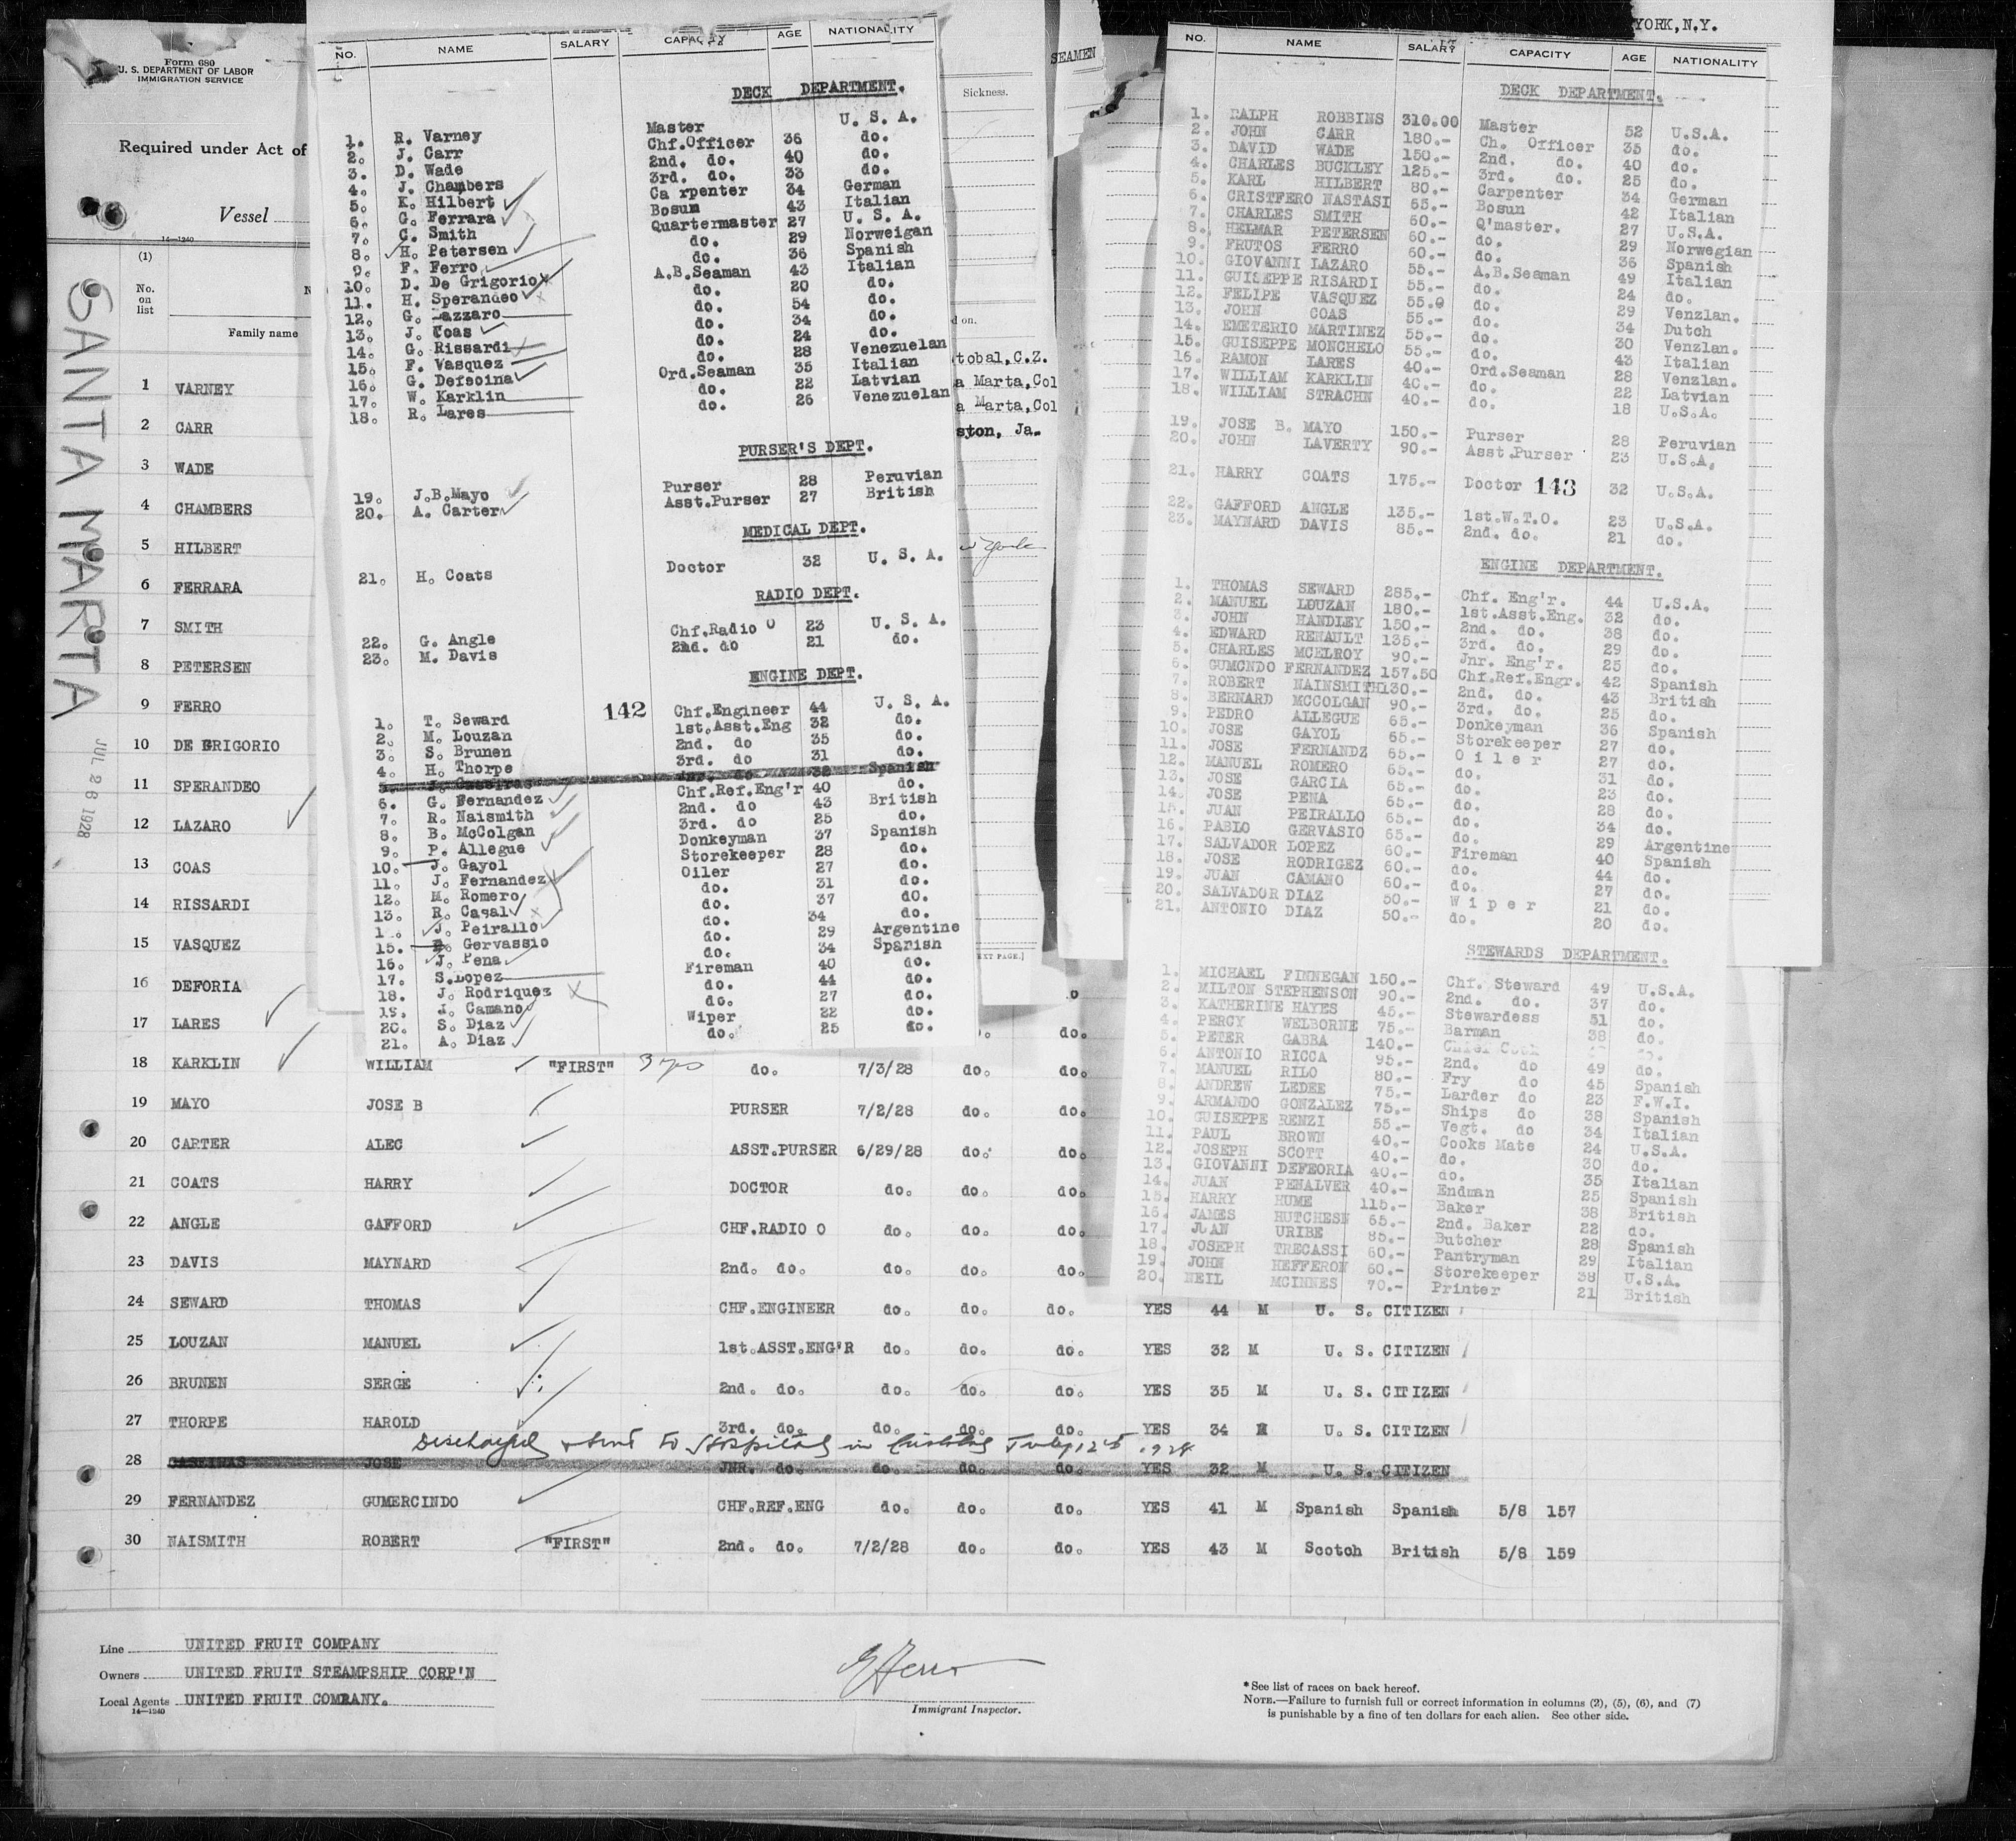 Form 680
U. S. DEPARTMENT OF LABOR
IMMIGRATION SERVICE
Required under Act of
Vessel
14—1240
(1)
No. on list
Family name
SANTA MARTA
JUL 26 1928
1 VARNEY
2 CARR
3 WADE
4 CHAMBERS
5 HILBERT
6 FERRARA
7 SMITH
8 PETERSEN
9 FERRO
10 DE GRIGORIO
11 SPERANDEO
12 LAZARO
13 COAS
14 RISSARDI
15 VASQUEZ
16 DEFORIA
17 LARES do.
18 KARKLIN WILLIAM "FIRST" do. 7/3/28 do. do.
19 MAYO JOSE B PURSER 7/2/28 do. do.
20 CARTER ALEC ASST.PURSER 6/29/28 do. do.
21 COATS HARRY DOCTOR do. do. do.
22 ANGLE GAFFORD CHF.RADIO O do. do. do.
23 DAVIS MAYNARD 2nd. do. do. do. do.
24 SEWARD THOMAS CHF.ENGINEER do. do. do. YES 44 M U. S. CITIZEN
25 LOUZAN MANUEL 1st.ASST.ENG'R do. do. do. YES 32 M U. S. CITIZEN
26 BRUNEN SERGE 2nd. do. do. do. do. YES 35 M U. S. CITIZEN
27 THORPE HAROLD 3rd. do. do. do. do. YES 34 M U. S. CITIZEN
Discharged & sent to Hospital in Cristobal July 12th 1928
28 CASEIRAS JOSE JNR. do. do. do. do. YES 32 M U. S. CITIZEN
29 FERNANDEZ GUMERCINDO CHF.REF.ENG do. do. do. YES 41 M Spanish Spanish 5/8 157
30 NAISMITH ROBERT "FIRST" 2nd. do. 7/2/28 do. do. YES 43 M Scotch British 5/8 159
Line UNITED FRUIT COMPANY
Owners UNITED FRUIT STEAMPSHIP CORP'N
Local Agents UNITED FRUIT COMRANY.
14—1240
Immigrant Inspector.
*See list of races on back hereof.
NOTE.—Failure to furnish full or correct information in columns (2), (5), (6), and (7)
is punishable by a fine of ten dollars for each alien. See other side.
NO. NAME SALARY CAPACITY AGE NATIONALITY
DECK DEPARTMENT.
1. R. Varney Master 36 U. S. A.
2. J. Carr Chf.Officer 40 do.
3. D. Wade 2nd. do. 33 do.
4. J. Chambers 3rd. do. 34 do.
5. K. Hilbert Ca rpenter 43 German
6. G. Ferrara Bosun 27 Italian
7. C. Smith Quartermaster 29 U. S. A.
8. H. Petersen do. 36 Norweigan
9. F. Ferro do. 43 Spanish
10. D. De Grigorio A.B.Seaman 20 Italian
11. H. Sperandeo do. 54 do.
12. G. Lazzaro do. 34 do.
13. J. Coas do. 24 do.
14. G. Rissardi do. 28 do.
15. F. Vasquez do. 35 Venezuelan
16. G. Defecina Ord.Seaman 22 Italian
17. W. Karklin do. 26 Latvian
18. R. Lares do. Venezuelan
PURSER'S DEPT.
19. J.B.Mayo Purser 28 Peruvian
20. A. Carter Asst.Purser 27 British
MEDICAL DEPT.
21. H. Coats Doctor 32 U. S. A.
RADIO DEPT.
22. G. Angle Chf.Radio O 23 U. S. A.
23. M. Davis 2nd. do 21 do.
ENGINE DEPT.
142
1. T. Seward Chf.Engineer 44 U. S. A.
2. M. Louzan 1st.Asst.Eng 32 do.
3. S. Brunen 2nd. do 35 do.
4. H. Thorpe 3rd. do 31 do.
5. J. Caseiras Jnr. do 32 Spanish
6. G. Fernandez Chf.Ref.Eng'r 40 do.
7. R. Naismith 2nd. do 43 British
8. B. McColgan 3rd. do 25 do.
9. P. Allegue Donkeyman 37 Spanish
10. J. Gayol Storekeeper 28 do.
11. J. Fernandez Oiler 27 do.
12. M. Romero do. 31 do.
13. R. Casal do. 37 do.
1 . J. Peirallo do. 34 do.
15. Gervassio do. 29 Argentine
16. J. Pena do. 34 Spanish
17. S.Lopez Fireman 40 do.
18. J. Rodriquez do. 44 do.
19. J. Camano do. 27 do.
20. S. Diaz Wiper 22 do.
21. A. Diaz do. 25 do.
SEAMEN
Sickness.
d on.
tobal,C.Z.
a Marta,Col
a Marta,Col
ston, Ja.
EXT PAGE.]
YORK,N.Y.
NO. NAME SALARY CAPACITY AGE NATIONALITY
DECK DEPARTMENT.
1. RALPH ROBBINS 310.00 Master 52 U.S.A.
2. JOHN CARR 180.- Ch. Officer 35 do.
3. DAVID WADE 150.- 2nd. do. 40 do.
4. CHARLES BUCKLEY 125.- 3rd. do. 25 do.
5. KARL HILBERT 80.- Carpenter 34 German
6. CRISTFERO NASTASI 65.- Bosun 42 Italian
7. CHARLES SMITH 60.- Q'master. 27 U.S.A.
8. HELMAR PETERSEN 60.- do. 29 Norwegian
9. FRUTOS FERRO 60.- do. 36 Spanish
10. GIOVANNI LAZARO 55.- A.B.Seaman 49 Italian
11. GUISEPPE RISARDI 55.- do. 24 do.
12. FELIPE VASQUEZ 55.0 do. 29 Venzlan.
13. JOHN COAS 55.- do. 34 Dutch
14. EMETERIO MARTINEZ 55.- do. 30 Venzlan.
15. GUISEPPE MONCHELO 55.- do. 43 Italian
16. RAMON LARES 40.- Ord.Seaman 28 Venzlan.
17. WILLIAM KARKLIN 40.- do. 22 Latvian
18. WILLIAM STRACHN 40.- do. 18 U.S.A.
19. JOSE B. MAYO 150.- Purser 28 Peruvian
20. JOHN LAVERTY 90.- Asst.Purser 23 U.S.A.
21. HARRY COATS 175.- Doctor 143 32 U.S.A.
22. GAFFORD ANGLE 135.- 1st.W.T.O. 23 U.S.A.
23. MAYNARD DAVIS 85.- 2nd. do. 21 do.
ENGINE DEPARTMENT.
1. THOMAS SEWARD 285.- Chf. Eng'r. 44 U.S.A.
2. MANUEL LOUZAN 180.- 1st.Asst.Eng. 32 do.
3. JOHN HANDLEY 150.- 2nd. do. 38 do.
4. EDWARD RENAULT 135.- 3rd. do. 29 do.
5. CHARLES MCELROY 90.- Jnr. Eng'r. 25 do.
6. GUMCNDO FERNANDEZ 157.50 Chf.Ref.Engr. 42 Spanish
7. ROBERT NAINSMITH 130.- 2nd. do. 43 British
8. BERNARD MCCOLGAN 90.- 3rd. do. 25 do.
9. PEDRO ALLEGUE 65.- Donkeyman 36 Spanish
10. JOSE GAYOL 65.- Storekeeper 27 do.
11. JOSE FERNANDZ 65.- O i l e r 27 do.
12. MANUEL ROMERO 65.- do. 31 do.
13. JOSE GARCIA 65.- do. 23 do.
14. JOSE PENA 65.- do. 28 do.
15. JUAN PEIRALLO 65.- do. 34 do.
16. PABLO GERVASIO 65.- do. 29 Argentine
17. SALVADOR LOPEZ 60.- Fireman 40 Spanish
18. JOSE RODRIGEZ 60.- do. 44 do.
19. JUAN CAMANO 60.- do. 27 do.
20. SALVADOR DIAZ 50.- W i p e r 21 do.
21. ANTONIO DIAZ 50.- do. 20 do.
STEWARDS DEPARTMENT.
1. MICHAEL FINNEGAN 150.- Chf. Steward 49 U.S.A.
2. MILTON STEPHENSON 90.- 2nd. do. 37 do.
3. KATHERINE HAYES 45.- Stewardess 51 do.
4. PERCY WELBORNE 75.- Barman 38 do.
5. PETER GABBA 140.- Chief Cook do.
6. ANTONIO RICCA 95.- 2nd. do 49 do.
7. MANUEL RILO 80.- Fry do 45 Spanish
8. ANDREW LEDEE 75.- Larder do 23 F.W.I.
9. ARMANDO GONZALEZ 75.- Ships do 38 Spanish
10. GUISEPPE RENZI 55.- Vegt. do 34 Italian
11. PAUL BROWN 40.- Cooks Mate 24 U.S.A.
12. JOSEPH SCOTT 40.- do. 30 do.
13. GIOVANNI DEFEORIA 40.- do. 35 Italian
14. JUAN PENALVER 40.- Endman 25 Spanish
15. HARRY HUME 115.- Baker 38 British
16. JAMES HUTCHESN 65.- 2nd. Baker 22 do.
17. JUAN URIBE 85.- Butcher 28 Spanish
18. JOSEPH TRECASSI 60.- Pantryman 29 Italian
19. JOHN HEFFERON 60.- Storekeeper 38 U.S.A.
20. NEIL MCINNES 70.- Printer 21 British